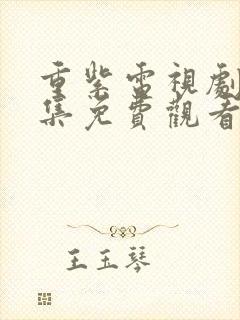 重紫電視劇
集免費觀看
王玉琴